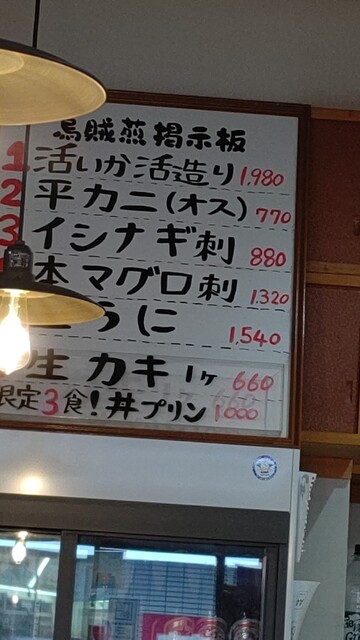 烏賊煎掲示板
1 活いか活造り 1,980
2 平カニ(オス) 770
3 イシナギ刺 880
本マグロ刺 1,320
うに 1,540
生カキ 1ヶ 660
限定3食!丼プリン 1,000